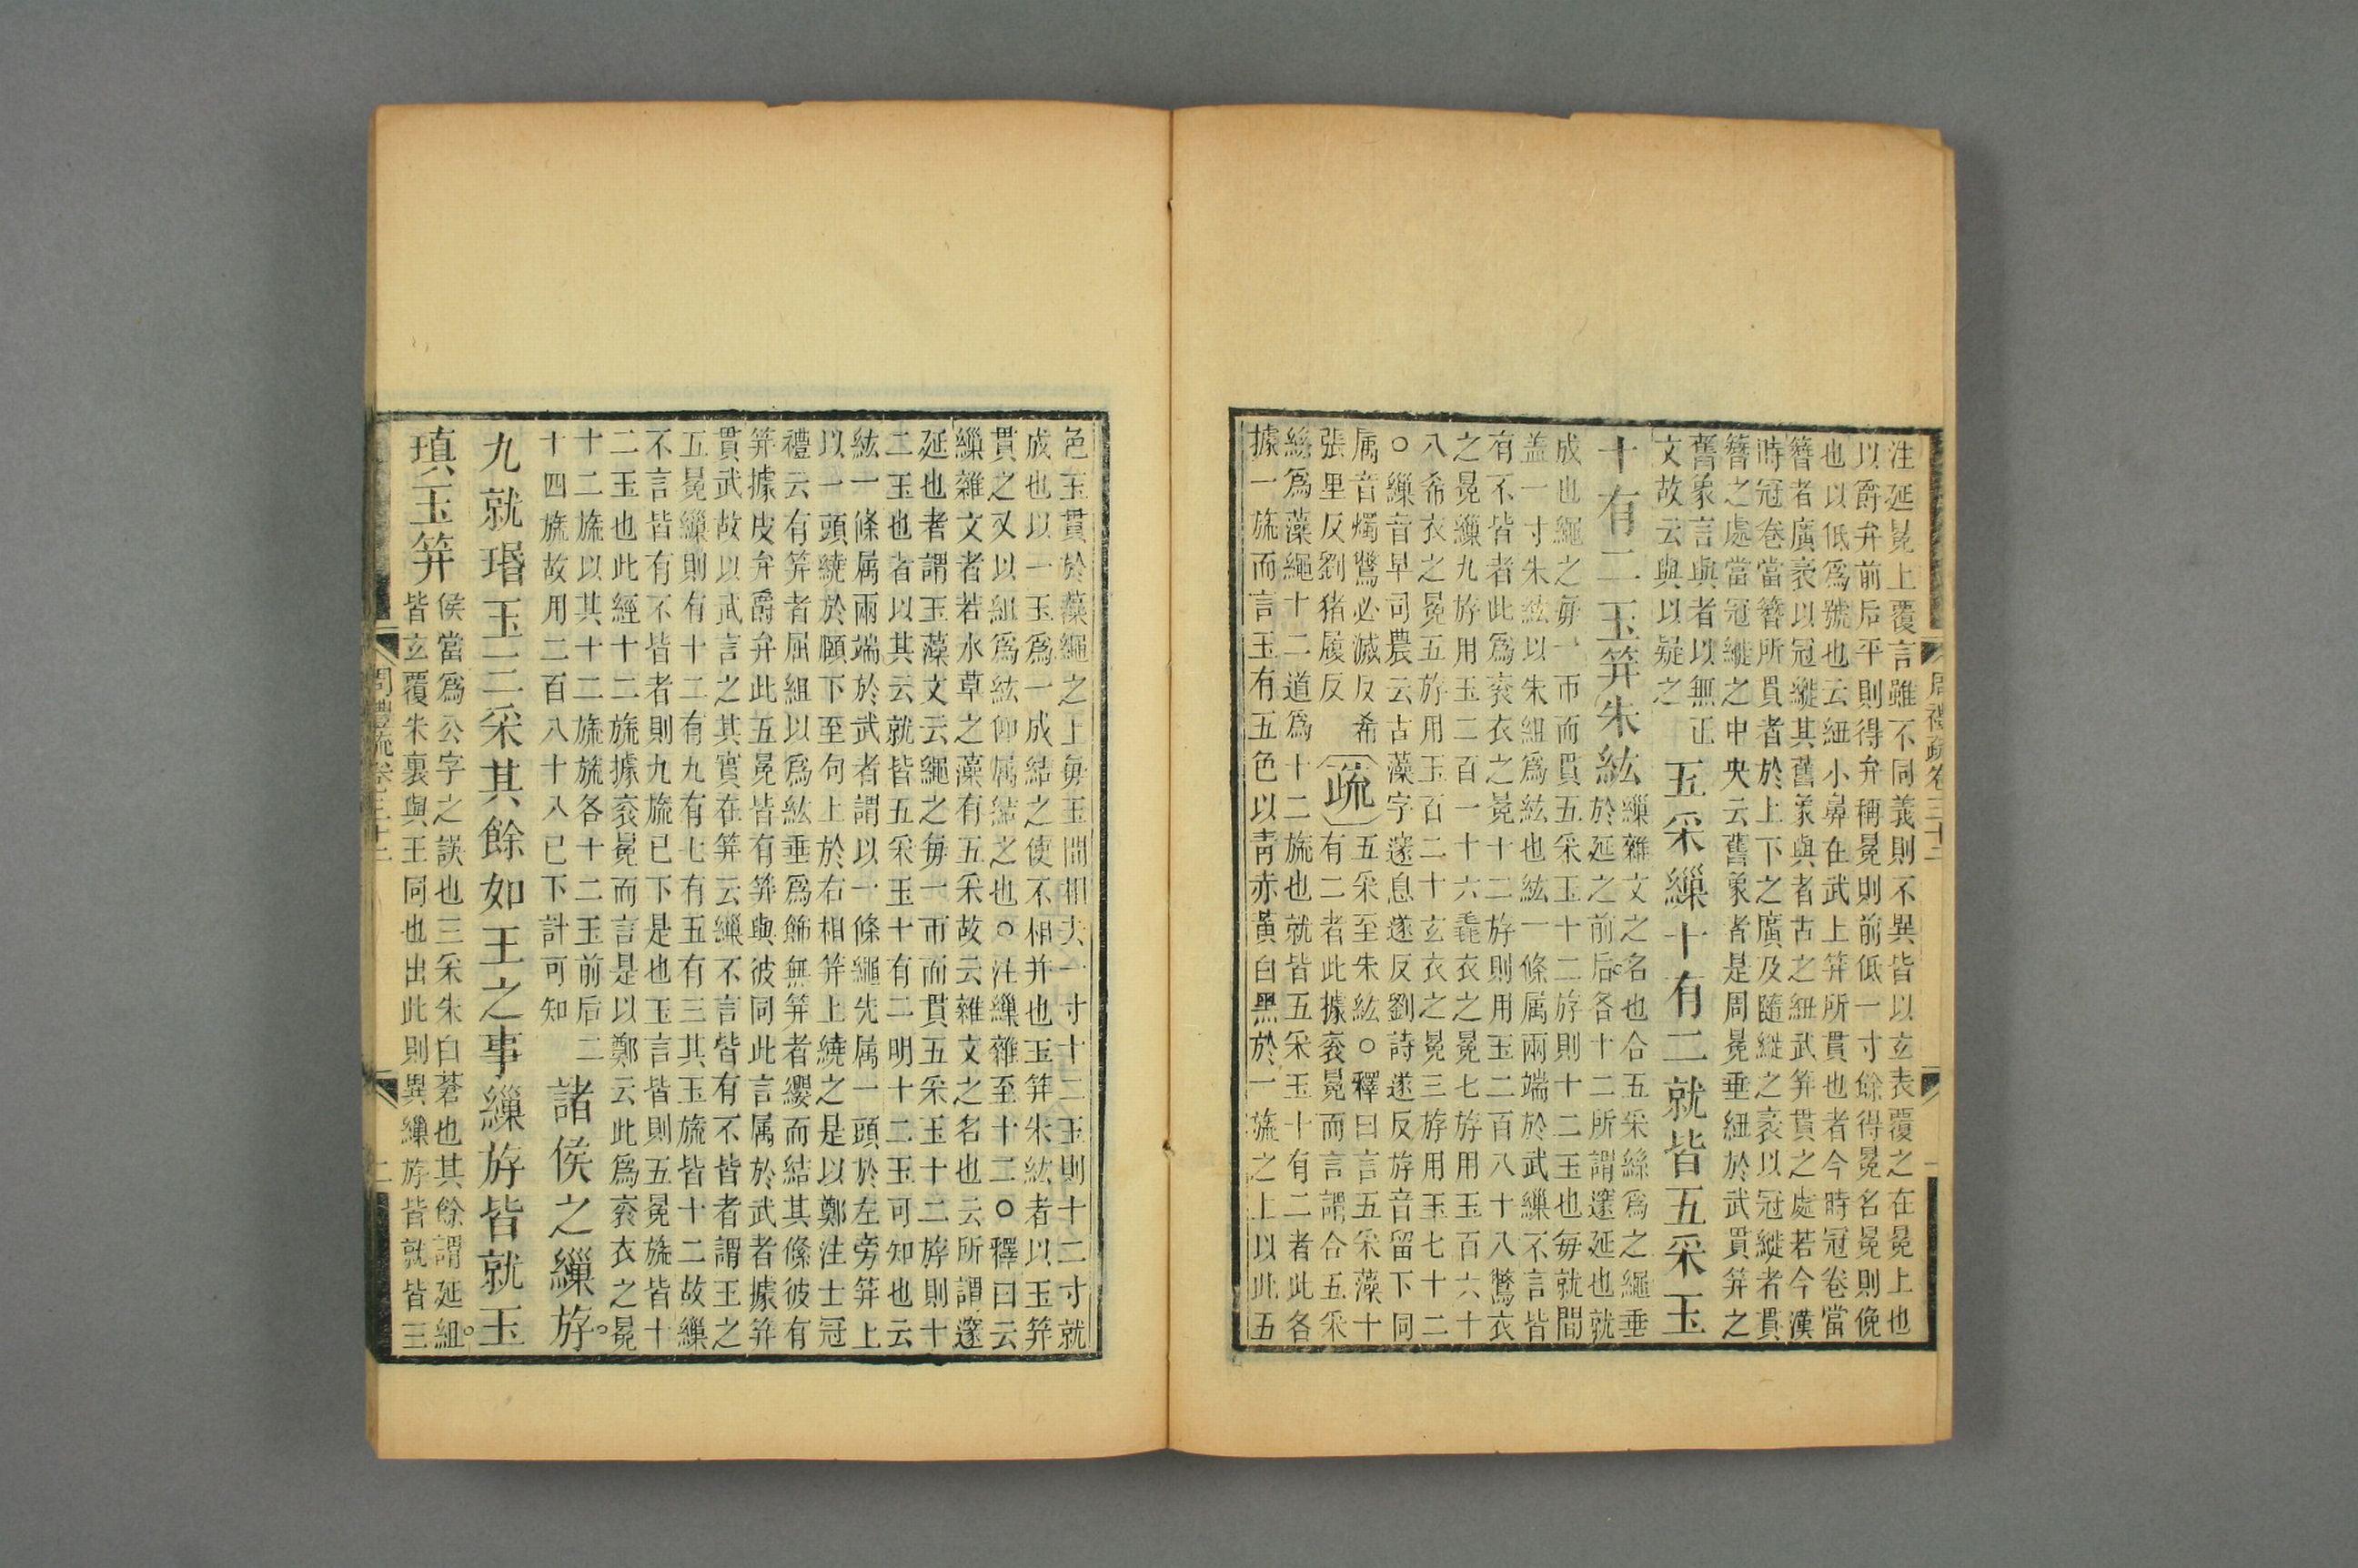 周禮疏卷三十二　一
注延冕上覆言雖不同義則不異皆以玄表覆之在冕上也
以爵弁前后平則得弁稱冕則前低一寸餘得冕名冕則俛
也以低爲號也云紐小鼻在武上笄所貫也者今時冠卷當
簪者廣袤以冠縰其舊象與者古之紐武笄貫之處若今漢
時冠卷當簪所貫者於上下之廣及隨縰之袤以冠縰者貫
簪之處當冠縰之中央云舊象者是周冕垂紐於武貫笄之
舊象言與者以無正
文故云與以疑之
五采繅十有二就皆五采玉
十有二玉笄朱紘
繅雜文之名也合五采絲爲之繩垂
於延之前后各十二所謂邃延也就
成也繩之每一帀而貫五采玉十二斿則十二玉也每就間
盖一寸朱紘以朱組爲紘也紘一條属兩端於武繅不言皆
有不皆者此爲衮衣之冕十二斿則用玉二百八十八鷩衣
之冕繅九斿用玉二百一十六毳衣之冕七斿用玉百六十
八希衣之冕五斿用玉百二十玄衣之冕三斿用玉七十二
○繅音早司農云古藻字邃息遂反劉詩遂反斿音留下同
属音燭鷩必滅反希
張里反劉猪履反
疏
五采至朱紘○釋曰言五采藻十
有二者此據衮冕而言謂合五采
絲爲藻繩十二道爲十二旒也就皆五采玉十有二者此各
據一旒而言玉有五色以靑赤黃白黑於一旒之上以此五
色玉貫於藻繩之上每玉間相去一寸十二玉則十二寸就
成也以一玉爲一成結之使不相并也玉笄朱紘者以玉笄
貫之又以組爲紘仰属結之也○注繅雜至十二○釋曰云
繅雜文者若水草之藻有五采故云雜文之名也云所謂邃
延也者謂玉藻文云繩之每一帀而貫五采玉十二斿則十
二玉也者以其云就皆五采玉十有二明十二玉可知也云
紘一條属兩端於武者謂以一條繩先属一頭於左旁笄上
以一頭繞於頤下至句上於右相笄上繞之是以鄭注士冠
禮云有笄者屈組以爲紘垂爲飾無笄者纓而結其絛彼有
笄據皮弁爵弁此五冕皆有笄與彼同此言属於武者據笄
貫武故以武言之其實在笄云繅不言皆有不皆者謂王之
五冕繅則有十二有九有七有五有三其玉旒皆十二故繅
不言皆有不皆者則九旒已下是也玉言皆則五冕旒皆十
二玉也此經十二旒據衮冕而言是以鄭云此爲衮衣之冕
十二旒以其十二旒旒各十二玉前后二
十四旒故用二百八十八已下計可知
諸侯之繅斿
九就瑉玉三采其餘如王之事繅斿皆就玉
瑱玉笄
侯當爲公字之誤也三采朱白蒼也其餘謂延組
皆玄覆朱裏與王同也出此則異繅斿皆就皆三
周禮疏卷三十二　二